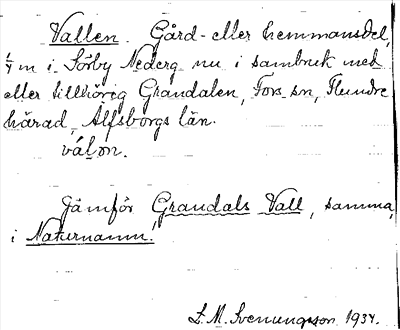 Vallen. Gård- eller hemmansdel,
1/4 m i Sörby Nederg. nu i sambruk med
eller tillhörig Grandalen, Fors sn, Flundre
härad, Älfsborgs län.
vál̥on.
Jämför Grandals Vall, samma,
i Naturnamn!
L. M. Svenungsson 1934.